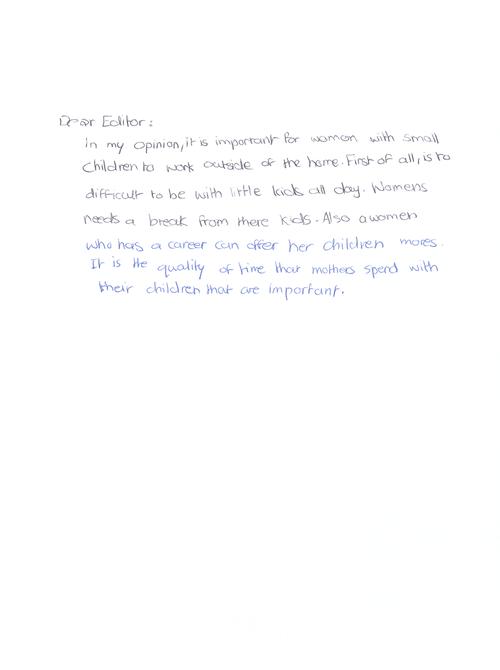 Dear Editor:
in my opinion, it is important for women with small
children to work outside of the home. First of all, is to
difficult to be with little kids all day. Womens
needs a break from there kids. Also a women
who has a career can offer her children mores.
It is the quality of time that mothers spend with
their children that are important.